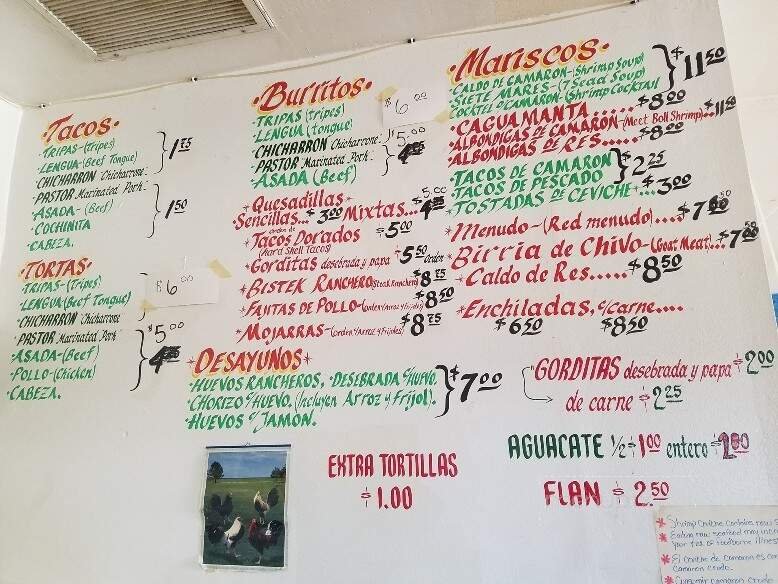 ·Tacos·
·TRIPAS-(Tripes)
·LENGUA-(Beef Tongue)
·CHICHARRON Chicharrone·
1.75
·PASTOR Marinated Pork·
·ASADA-(Beef)
·COCHINITA
·CABEZA.
1.50
·TORTAS·
·TRIPAS-(Tripes)
·LENGUA(Beef Tongue)
·CHICHARRON Chicharrone
$6.00
·PASTOR Marinated Pork
·ASADA-(Beef)
·POLLO-(Chicken)
·CABEZA.
$5.00
·Burritos·
TRIPAS (Tripes)
LENGUA (tongue)
$6.00
CHICHARRON Chicharrone·
PASTOR Marinated Pork·
ASADA (Beef)
5.00
*Quesadillas
·Sencillas...$3.00 Mixtas...
5.00
*Tacos Dorados $5.00
(Hard Shell Tacos)
*Gorditas desebrada y papa $5.50 Orden
*BISTEK RANCHERO(Steak Ranchero) $8.75
*FAJITAS DE POLLO-(orden c/Arroz y Frijoles) $8.50
*MOJARRAS-(orden c/Arroz y Frijoles) $8.75
*DESAYUNOS*
·HUEVOS RANCHEROS, ·DESEBRADA C/HUEVO.
·CHORIZO C/HUEVO. (Incluyen Arroz y Frijol).
·HUEVOS C/JAMON.
$7.00
·Mariscos·
·CALDO DE CAMARON-(Shrimp Soup)
·SIETE MARES-(7 Sead Soup)
·COCKTEL DE CAMARON-(Shrimp Cocktail
$11.50
*CAGUAMANTA......$8.00
*ALBONDIGAS DE CAMARON-(Meet Boll Shrimp)..$11.50
*ALBONDIGAS DE RES.....$8.00
·TACOS DE CAMARON
·TACOS DE PESCADO
$2.25
·TOSTADAS DE CEVICHE*...$3.00
*Menudo-(Red menudo)....$7.50
*Birria de Chivo-(Goat Meat).$7.50
*Caldo de Res.....$8.50
*Enchiladas, c/carne....
$6.50 $8.50
GORDITAS desebrada y papa $2.00
de carne $2.25
AGUACATE 1/2 $1.00 entero
FLAN $2.50
EXTRA TORTILLAS
$1.00
*Shrimp Ceviche contains raw
*Eating raw seafood may
your risk of foodborne illness
*El ceviche de camaron es
camaron crudo.
*Consumir camaron crudo